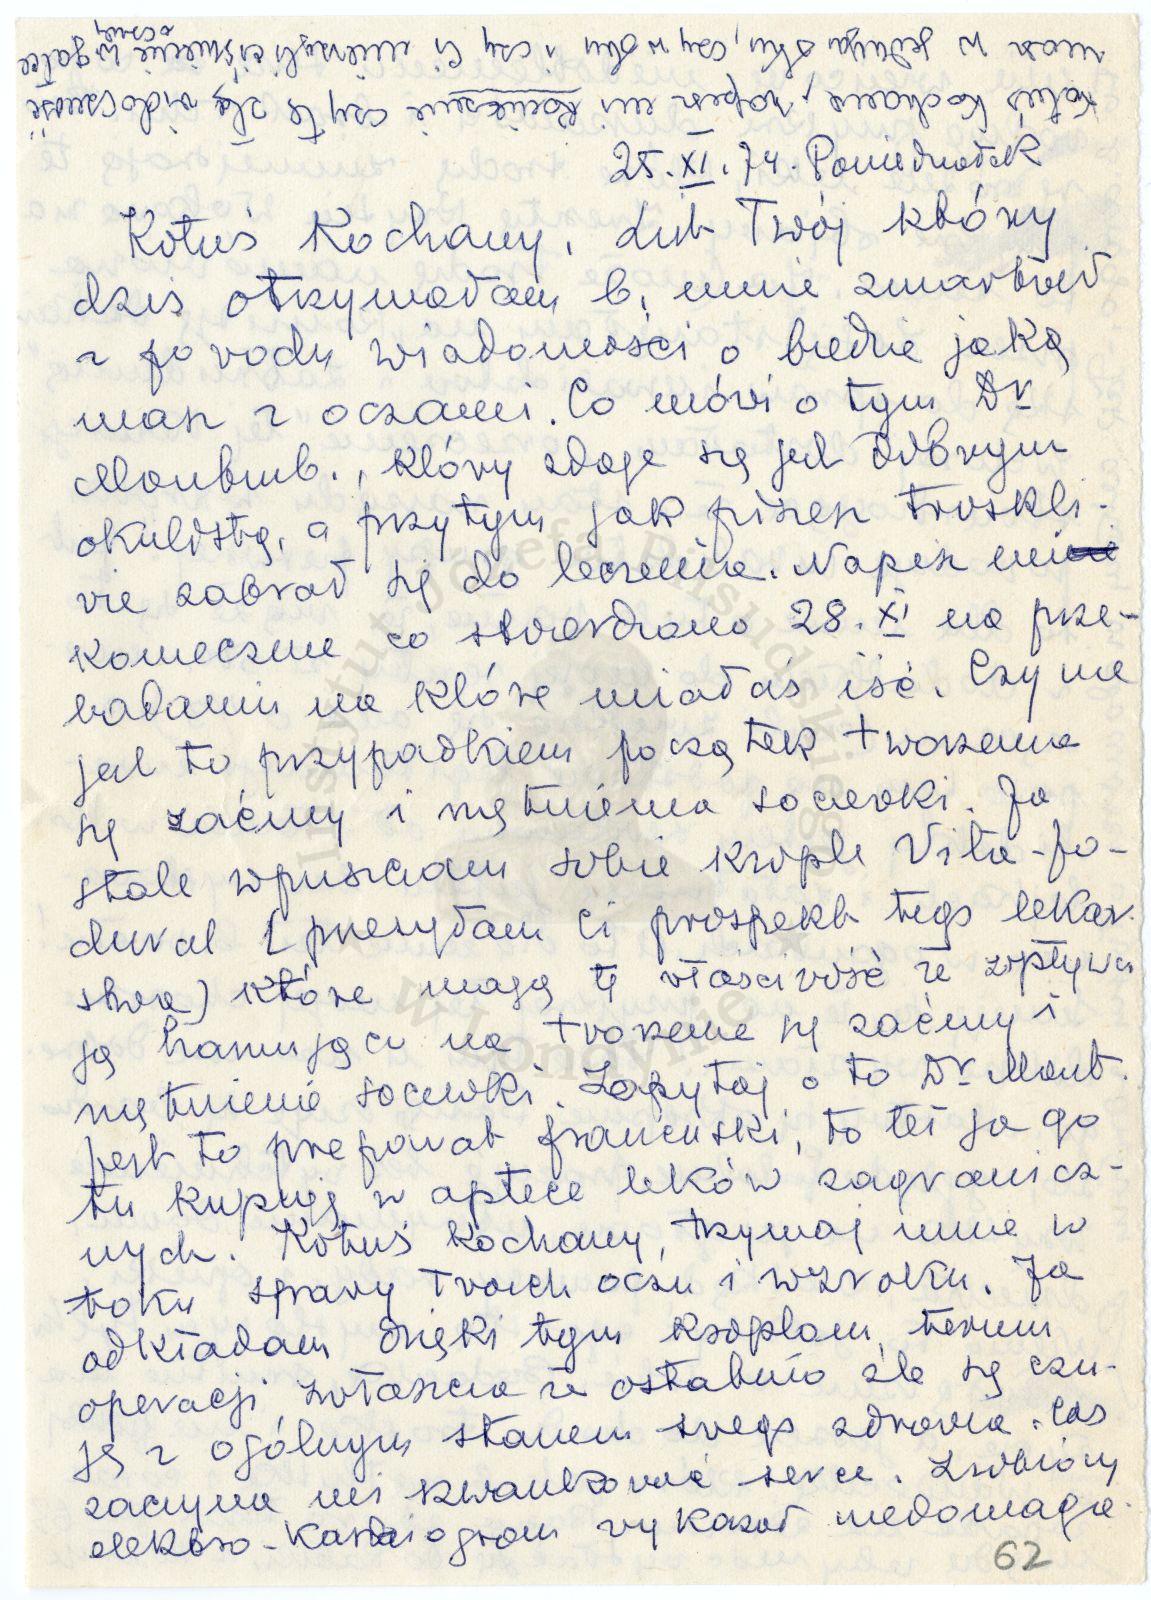 Kotuś Kochana, napisz mi koniecznie czy tę złą widoczność
masz w jednym oku, czy w obu i czy ci mierzyli ciśnienie w gałce
ocznej
25.XI.74. Poniedziałek
Kotuś Kochany, List Twój który
dziś otrzymałam b. mnie zmartwił
z powodu wiadomości o biedzie jaką
masz z oczami. Co mówi o tym Dr
Montbrub., który zdaje się jest dobrym
okulistą, a przytym jak piszesz troskli-
wie zabrał się do leczenia. Napisz mi
koniecznie co stwierdzono 28.XI na prze-
badaniu na które miałaś iść. Czy nie
jest to przypadkiem początek tworzenia
się zaćmy i mętnienia soczewki. Ja
stale wpuszczam sobie krople Vita-fa-
durol (przesyłam Ci prospekt tego lekar-
stwa) które mają tę właściwość że wpływa
ją hamująco na tworzenie się zaćmy i
mętnienie soczewki. Zapytaj o to Dr Mont.
jest to preparat francuski, to też ja go
tu kupuję w aptece leków zagranicz-
nych. Kotuś Kochany, trzymaj mnie w
toku sprawy Twoich oczu i wzroku. Ja
odkładam dzięki tym kroplom termin
operacji zwłaszcza że ostatnio źle się czu-
ję z ogólnym stanem swego zdrowia. Coś
zaczyna mi szwankować serce. Zrobiony
elektro-kardiogram wykazał niedomaga-
62
Instytut Józefa Piłsudskiego
w Londynie